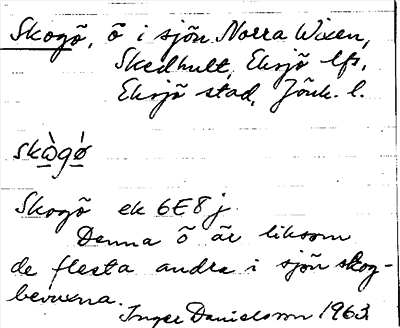 Skogö, ö i sjön Norra Wixen,
Skedhult, Eksjö lfs,
Eksjö stad, Jönk. l.
skὼgǿ
Skogö ek 6E8j
Denna ö är liksom
de flesta andra i sjön skog-
bevuxna.
Inger Danielsson 1963